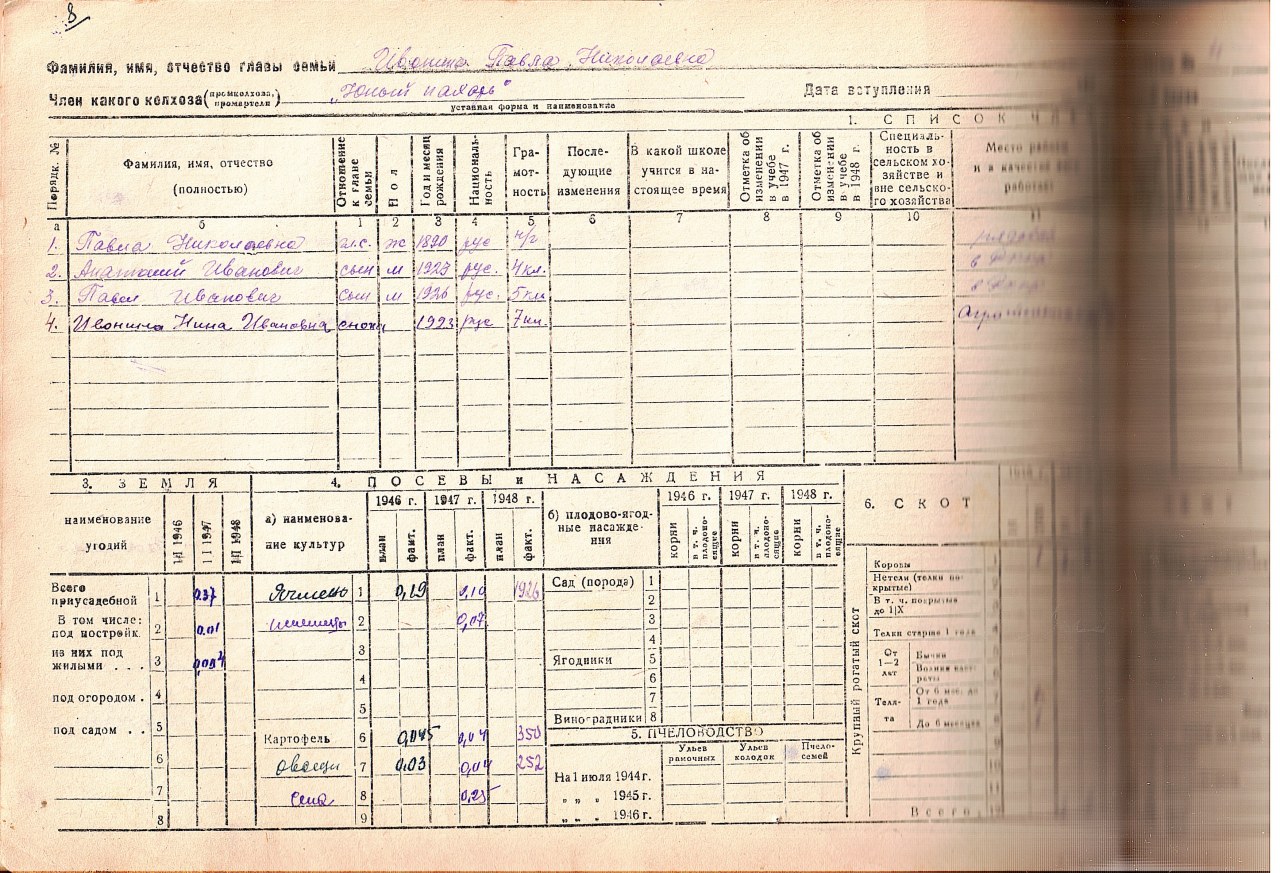 8
Фамилия, имя, отчество главы семьи Ивонина Павла Николаевна
Член какого колхоза (промколхоза, промартели) „Юный пахарь"
уставная форма и наименование
Дата вступления
1. СПИСОК
Порядк. №
Фамилия, имя, отчество (полностью)
Отношение к главе семьи
Пол
Год и месяц рождения
Националь-ность
Гра-мот-ность
После-дующие изменения
В какой школе учится в на-стоящее время
Отметка об изменении в учебе в 1947 г.
Отметка об изменении в учебе в 1948 г.
Специаль-ность в сельском хо-зяйстве и вне сельско-го хозяйства
Место работы и в качестве кого работает
а б 1 2 3 4 5 6 7 8 9 10 11
1. Павла Николаевна г.с. ж 1890 рус н/г рядовая
2. Анатолий Иванович сын м 1923 рус. 4кл.
3. Павел Иванович сын м 1926 рус. 5кл
4. Ивонина Нина Ивановна сноха 1923 рус 7кл.
3. ЗЕМЛЯ
наименование угодий
1|I 1946
1|I 1947
1|I 1948
Всего приусадебной 1 0.37
В том числе: под постройк. 2 0.01
из них под жилыми . . . 3 0,004
под огородом . 4
под садом . . 5
6
7
8
4. ПОСЕВЫ и НАСАЖДЕНИЯ
а) наименова-ние культур
1946 г. 1947 г. 1948 г.
план факт. план факт. план факт.
Ячмень 1 0,19 0,10 1926
пшеница 2 0,07
3
4
5
Картофель 6 0,045 0,04 350
овощи 7 0.03 0,04 252
сена 8 0,25
9
б) плодово-ягод-ные насажде-ния
1946 г. 1947 г. 1948 г.
корни в т. ч. плодоно-сящие корни в т. ч. плодоно-сящие корни в т. ч. плодоно-сящие
Сад (порода) 1
2
3
4
Ягодники 5
6
7
Виноградники 8
5. ПЧЕЛОВОДСТВО
Ульев рамочных Ульев колодок Пчело-семей
На 1 июля 1944 г.
„ „ „ 1945 г.
„ „ „ 1946 г.
6. СКОТ
Крупный рогатый скот
Коровы
Нетели (телки по-крытые)
В т. ч. покрытые до 1|X
Телки старше 1 года
От 1—2 лет
Бычки
Телята
От 6 мес. до 1 года
До 6 месяцев
Всего